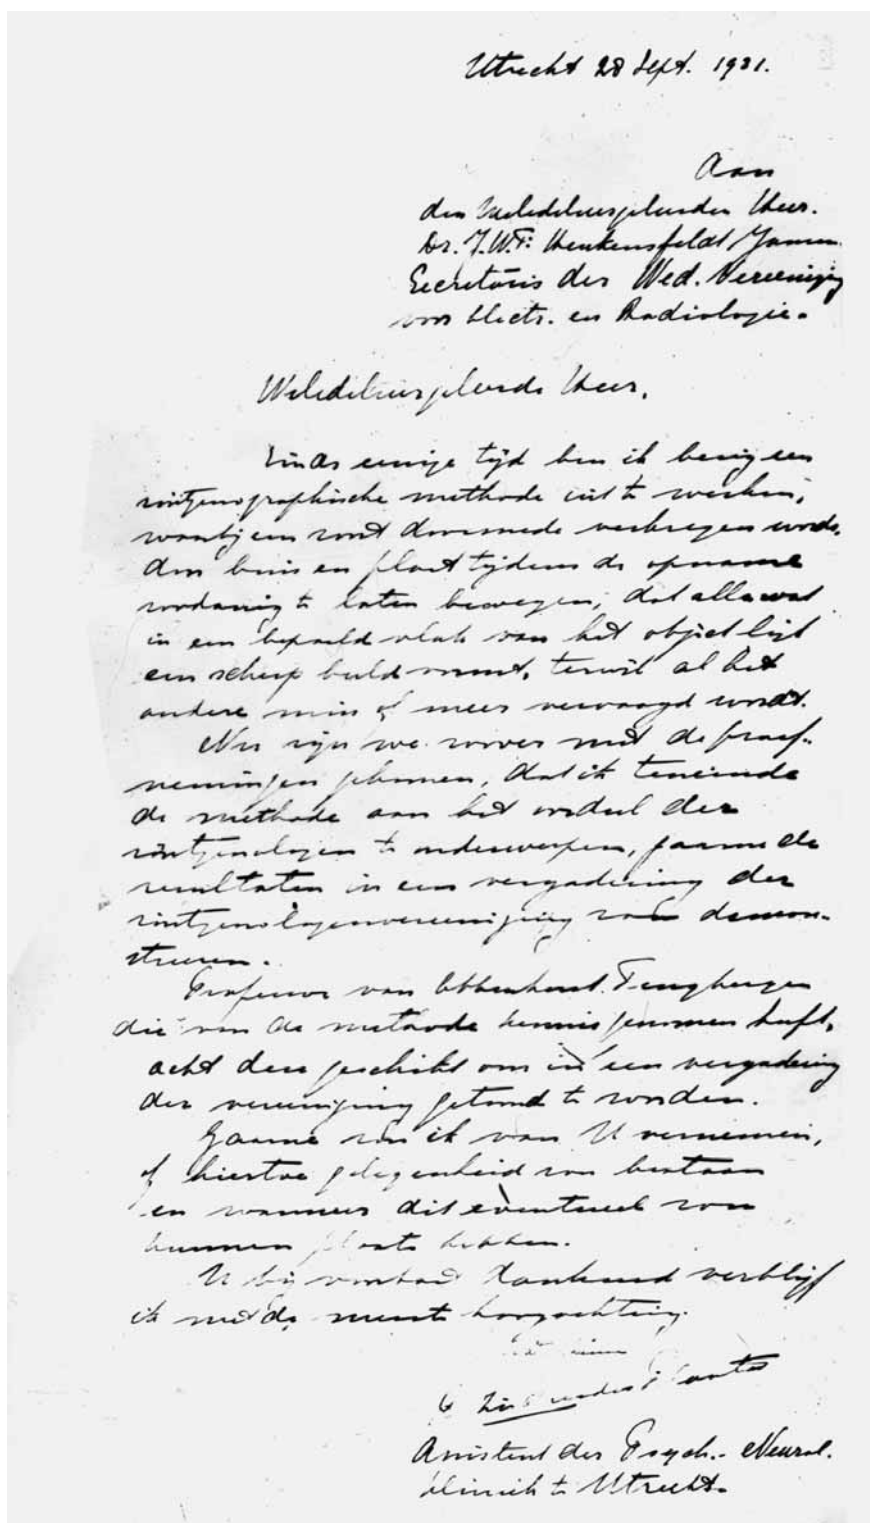 Utrecht 28 Sept. 1931.
Aan
den Weledelzeergeleerden Heer.
Dr. J.W.F. Heukensfeldt Jansen
Secretaris der Ned. Vereeniging
voor Electr. en Radiologie.
Weledelzeergeleerde Heer,
Sinds eenige tijd ben ik bezig een
röntgenographische methode uit te werken,
waarbij een vond daarmede verkregen wordt,
door buis en plaat tijdens de opname
zoodanig te laten bewegen, dat alles wat
in een bepaald vlak van het object ligt
een scherp beeld vormt, terwijl al het
andere min of meer vervaagd wordt.
Nu zijn we zoover met de proef-
nemingen gekomen, dat ik teneinde
de methode aan het oordeel der
röntgenologen te onderwerpen, gaarne de
resultaten in een vergadering der
röntgenologenvereeniging zou demon-
streeren.
Professor van Ebbenhorst Tengbergen
die van de methode kennis genomen heeft,
acht deze geschikt om in een vergadering
der vereeniging getoond te worden.
Gaarne zou ik van U vernemen,
of hiertoe gelegenheid zou bestaan
en wanneer dit eventueel zou
kunnen plaats hebben.
U bij voorbaat dankend verblijf
ik met de meeste hoogachting.
Ziedses des Plantes
Assistent der Psych.- Neurol.
kliniek te Utrecht.